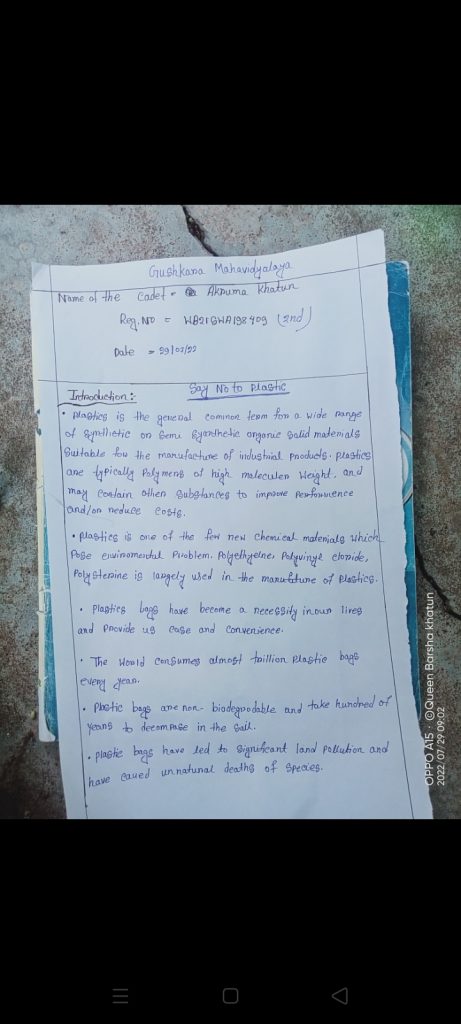 Gushkara Mahavidyalaya
Name of the Cadet = Aknuma Khatun
Reg. No = WB21SWA198409 (2nd)
Date = 29/07/22
Say No to Plastic
Introduction :-
• plastics is the general common term for a wide range
of synthetic or semi syanthetic organic solid materials
suitable for the manufacture of industrial products. plastics
are typically polymens of high moleculer weight, and
may contain other substances to improve performence
and/or reduce costs.
• plastics is one of the few new chemical materials which
pose enviromental problem. Polyethyelne, Polyvinyl cloride,
Polysterine is largely used in the manufature of plastics.
• plastics bags have become a necessity in our lives
and provide us ease and convenience.
• The world consumes almost trillion plastic bags
every year.
• plastic bags are non- biodegrodable and take hundred of
years to decompase in the sail.
• plastic bags have led to significant land pollution and
have caued unnatural deaths of species.
OPPO A15 · ©Queen Barsha khatun
2022/07/29 09:02